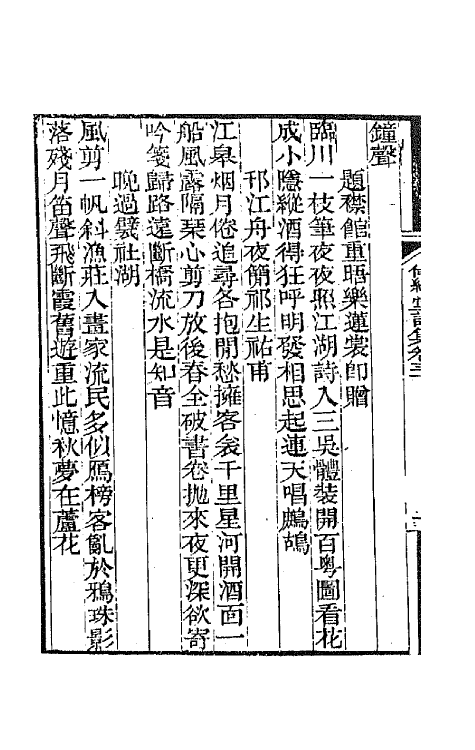 鐘聲
題襟館重晤樂蓮裳卽贈
臨川一枝筆夜夜照江湖詩入三吳體裝開百粵圖看花
成小隱縱酒得狂呼明發相思起連天唱鷓鴣
邗江舟夜簡祁生祐甫
江皋烟月倦追尋各抱閒愁擁客衾千里星河開酒面一
船風露隔琴心剪刀放後春全破書卷拋來夜更深欲寄
吟箋歸路遠斷橋流水是知音
晚過甓社湖
風剪一帆斜漁莊入畫家流民多似鴈榜客亂於鴉珠影
落殘月笛聲飛斷霞舊遊重此憶秋夢在蘆花